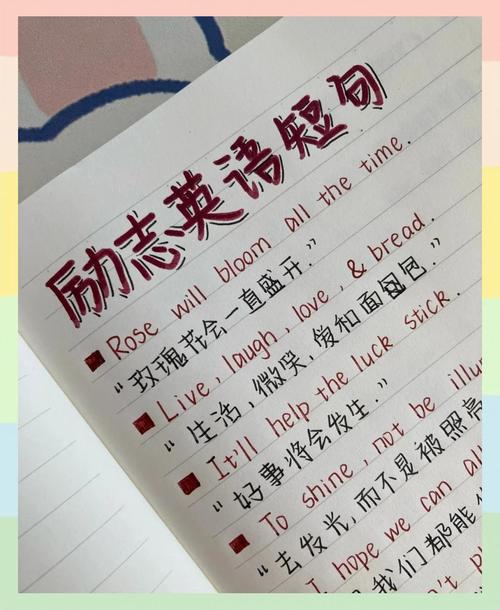 励志英语短句
Rose will bloom all the time.
“玫瑰花会一直盛开.”
Live, laugh, love, & bread.
“生活,微笑,爱和面包.”
It'll help the luck stick.
“好事将会发生.”
To shine, not be
“去发光,而不是被照亮
I hope we can
我们都能